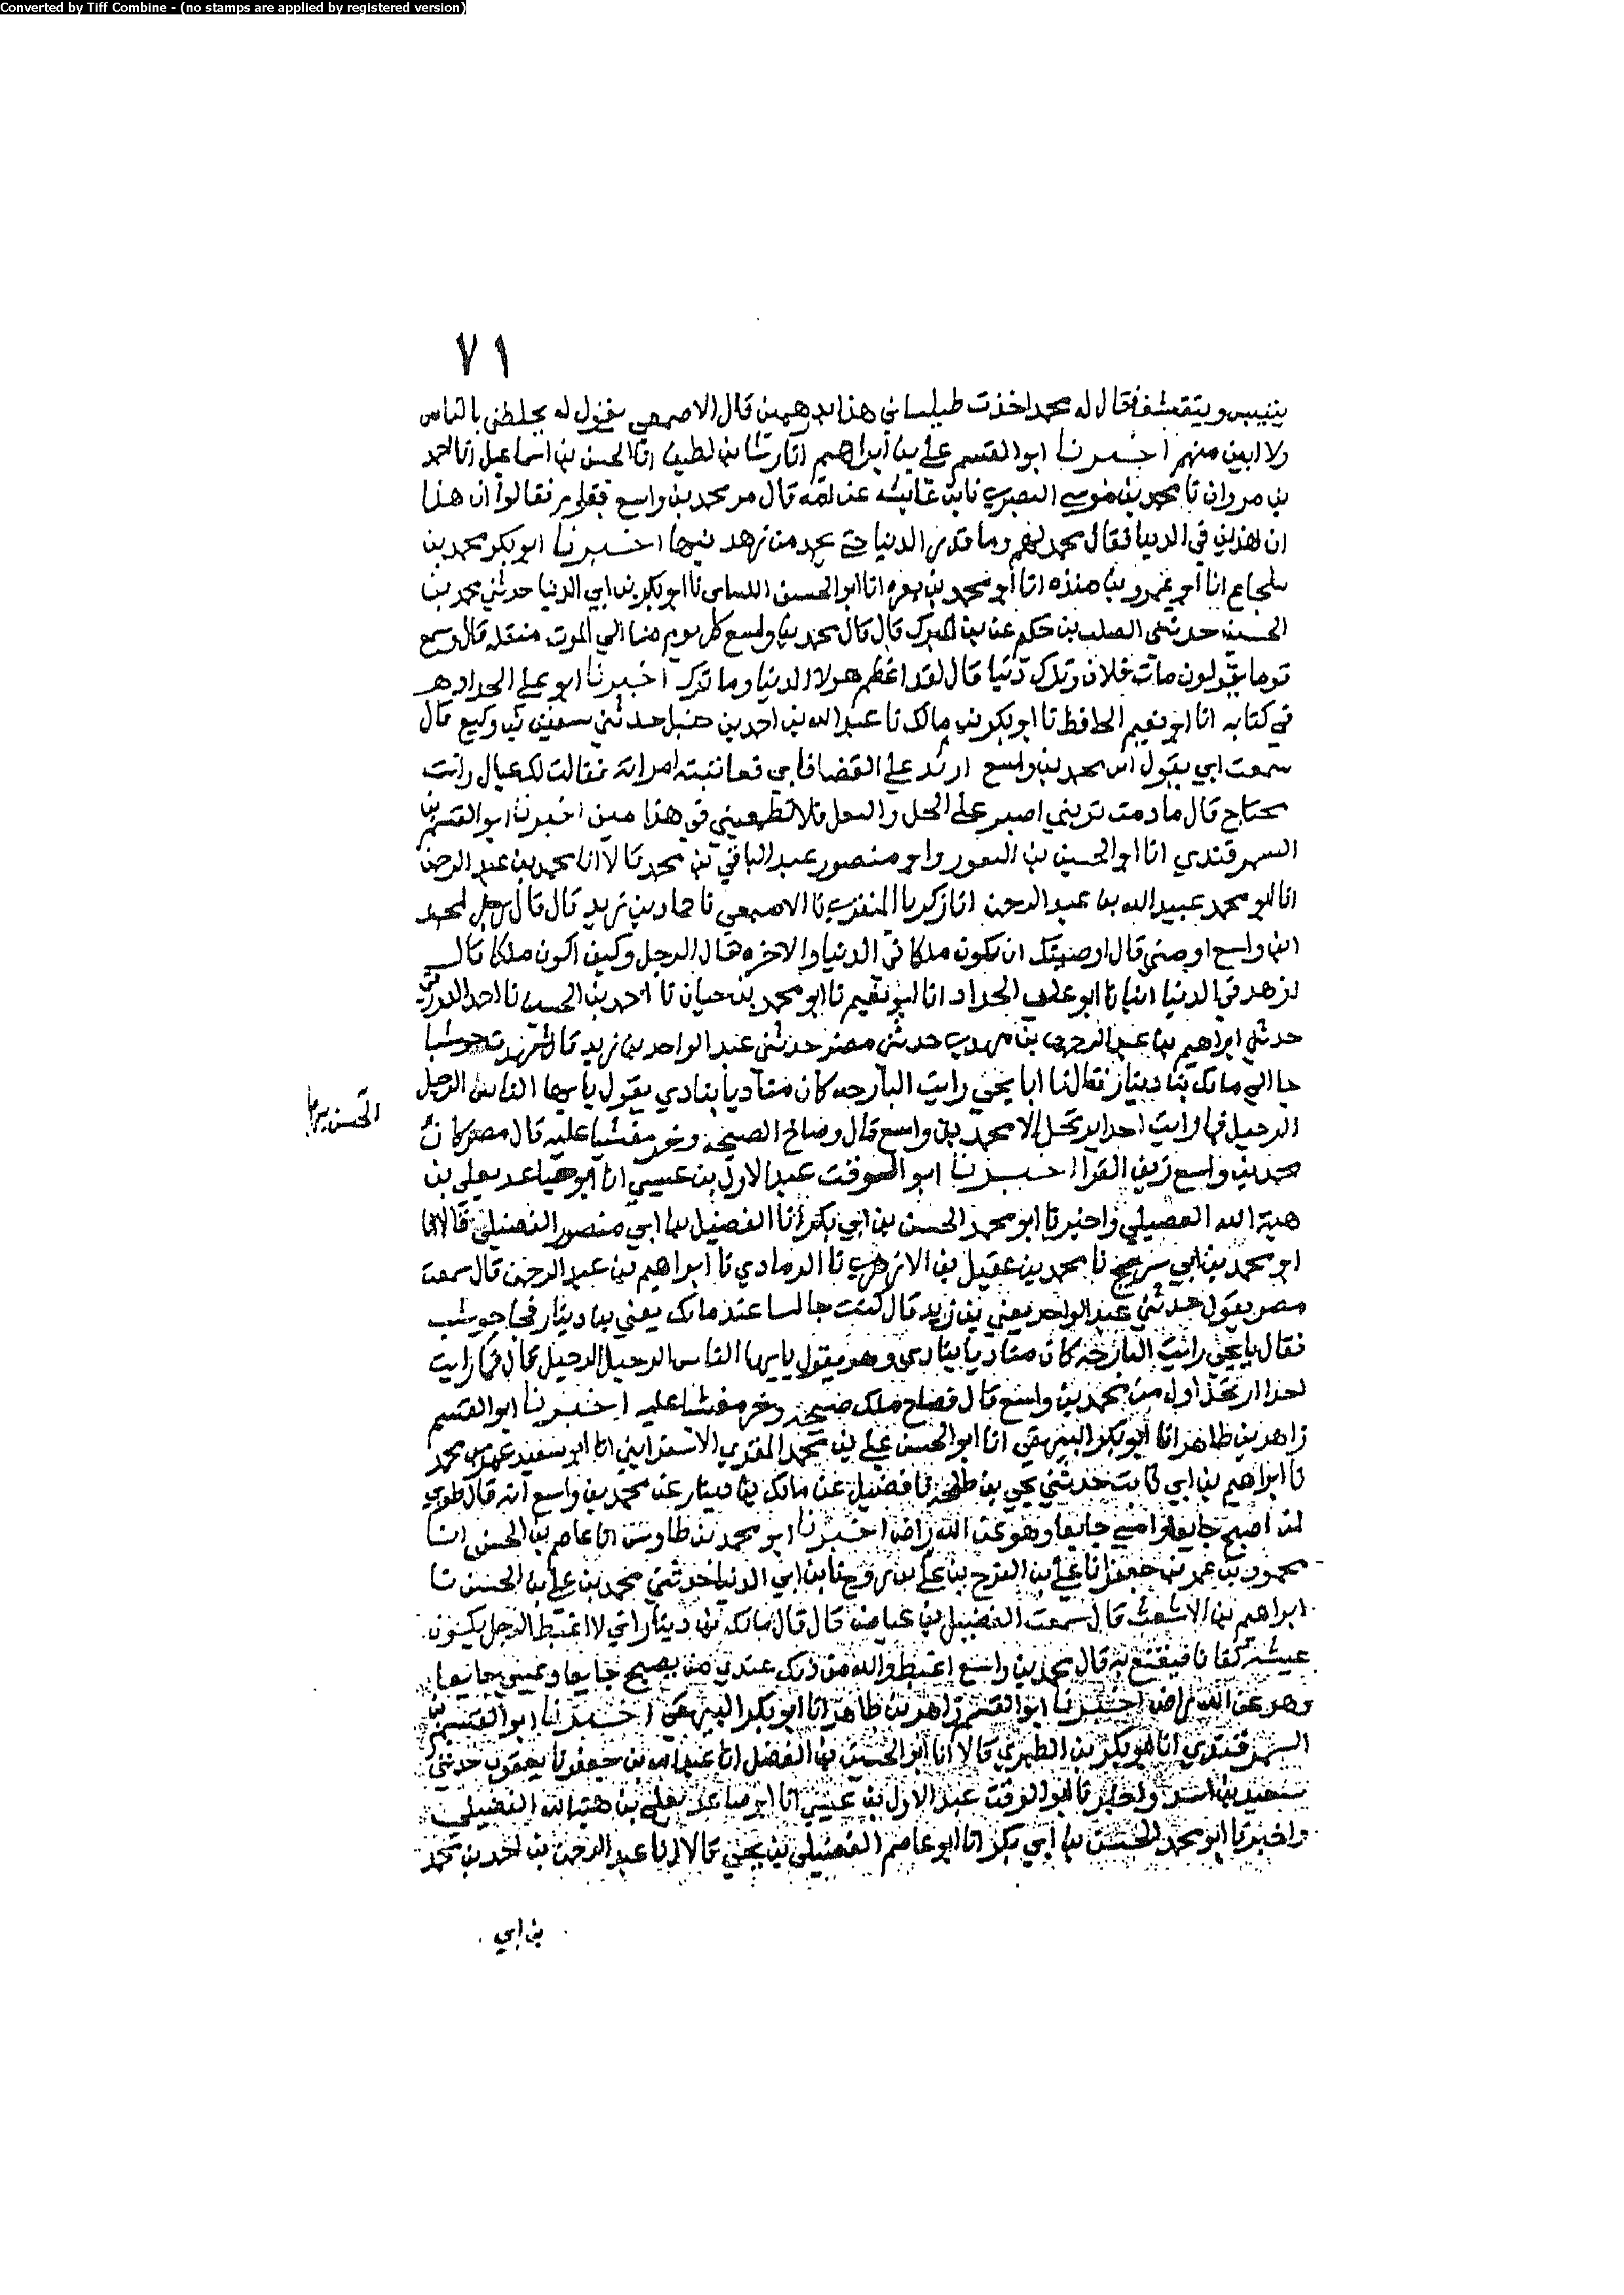 Converted by Tiff Combine - (no stamps are applied by registered version)
٧١
ويتقشف فقال له محمد اخذت طيلساني هذا بدرهمين قال الاصمعي يقول له يخلطني بالناس
ولا ابين منهم اخبرنا ابو القسم علي بن ابراهيم انا رشا بن نظيف انا الحسن بن اسماعيل انا احمد
بن مروان نا محمد بن موسى البصري نا بن عايشه عن قال مر محمد بن واسع بقوم فقالوا ان هذا
في الدنيا فقال محمد لهم وما قدر الدنيا حتى يحمد من زهد فيها اخبرنا ابو بكر محمد بن
شجاع انا ابو عمرو بن منده انا ابو محمد بن يوه انا ابو الحسن نا ابو بكر بن ابي الدنيا حدثني محمد بن
الحسين حدثني الصلت بن حكيم عن بن المبارك قال قال محمد بن واسع كل يوم الى الموت منقله قال وسمع
قوما يقولون مات فلان وترك دنيا قال لقد اعظم هولا الدنيا وما ترك اخبرنا ابو علي الحداد
في كتابه انا ابو نعيم الحافظ نا ابو بكر بن مالك نا عبد الله بن احمد بن حنبل حدثني سفين بن وكيع قال
سمعت ابي يقول ان محمد بن واسع اريد على القضا فابى فعاتبته امراته فقالت لك عيال وانت
محتاج قال ما دمت تريني اصبر على الخل والبقل فلا تطمعيني في هذا مني اخبرنا ابو القسم بن
السمرقندي انا ابو الحسين بن النقور وابو منصور عبد الباقي بن محمد قالا انا محمد بن عبد الرحمن
انا ابو محمد عبيد الله بن عبد الرحمن انا زكريا المنقري نا الاصمعي نا حماد بن زيد قال قال رجل لمحمد
ابن واسع اوصني قال اوصيتك ان تكون ملكا في الدنيا والاخره فقال الرجل وكيف اكون ملكا قال
ازهد في الدنيا انبانا ابو علي الحداد انا ابو نعيم نا ابو محمد بن حيان نا احمد بن الحسين نا احمد الدورقي
حدثني ابراهيم بن عبد الرحمن بن مهدي حدثني مضر حدثني عبد الواحد بن زيد قال شهدت حوشبا
جا الى مالك بن دينار فقال يا ابا يحيى رايت البارحه كان مناديا ينادي يقول يا ايها الناس الرحيل
الرحيل فما رايت احدا يرتحل الا محمد بن واسع قال وصاح الصيحه وخر مغشيا عليه قال مضر كان
الحسن
محمد بن واسع زين القرا اخبرنا ابو الوقت عبد الاول بن عيسى انا ابو صاعد يعلى بن
هبة الله الفضيلي واخبرنا ابو محمد الحسن بن ابي بكر انا الفضيل بن ابي منصور الفضيلي قالا انا
ابو محمد بن ابي شريح نا محمد بن عقيل بن الازهري نا الرمادي نا ابراهيم بن عبد الرحمن قال سمعت
مضر يقول حدثني عبد الواحد يعني بن زيد قال كنت جالسا عند مالك يعني بن دينار فجا حوشب
فقال يا يحيى رايت البارحه كان مناديا ينادي وهو يقول يا ايها الناس الرحيل الرحيل قال فما رايت
احدا ارتحل اول من محمد بن واسع قال فصاح ملك صيحه وخر مغشيا عليه اخبرنا ابو القسم
زاهر بن طاهر انا ابو بكر البيهقي انا ابو الحسن علي بن محمد المقري الاسفرايني انا ابو سعيد عمرو بن محمد
نا ابراهيم بن ابي ثابت حدثني يحيى بن طلحه نا فضيل عن مالك بن دينار عن محمد بن واسع انه قال طوبى
لمن اصبح جايعا وامسى جايعا وهو عن الله راض اخبرنا ابو محمد بن طاوس انا عاصم بن الحسن انا
محمود بن عمر بن جعفر انا علي بن الفرج بن علي بن روح نا بن ابي الدنيا حدثني محمد بن علي بن الحسن نا
ابراهيم بن الاشعث قال سمعت الفضيل بن عياض قال قال مالك بن دينار اني لاغتبط الرجل يكون
عيشته كفافا فيقنع به قال محمد بن واسع اغبط والله من ذلك عندي من يصبح جايعا ويمسي جايعا
وهو عن الله راض اخبرنا ابو القسم زاهر بن طاهر انا ابو بكر البيهقي اخبرنا ابو القسم بن
السمرقندي انا ابو بكر بن الطبري قالا انا ابو الحسين بن الفضل انا عبد الله بن جعفر نا يعقوب حدثني
سعيد بن اسد واخبرنا ابو الوقت عبد الاول بن عيسى انا ابو صاعد يعلى بن هبة الله الفضيلي
واخبرنا ابو محمد الحسن بن ابي بكر انا ابو عاصم الفضيلي بن يحيى قالا انا عبد الرحمن بن احمد بن محمد
بن ابي